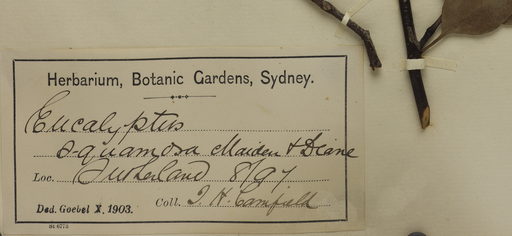 Herbarium, Botanic Gardens, Sydney.
Eucalyptus
squamosa Maiden & Deane
Loc. Sutherland 8/97
Coll. J. H. Camfield
Ded. Goebel X, 1903.
St 6775